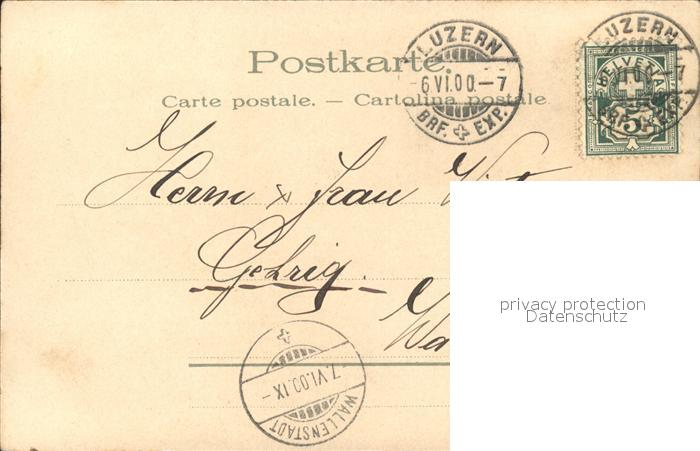 Postkarte.
Carte postale. — Cartolina postale
LUZERN
-6.VI.00.-7
BRF. EXP.
LUZERN
BRF. EXP.
HELVETIA
5
Herrn & Frau
Gehrig.
Wa
7.VI.00.IX-
WALLENSTADT
privacy protection
Datenschutz